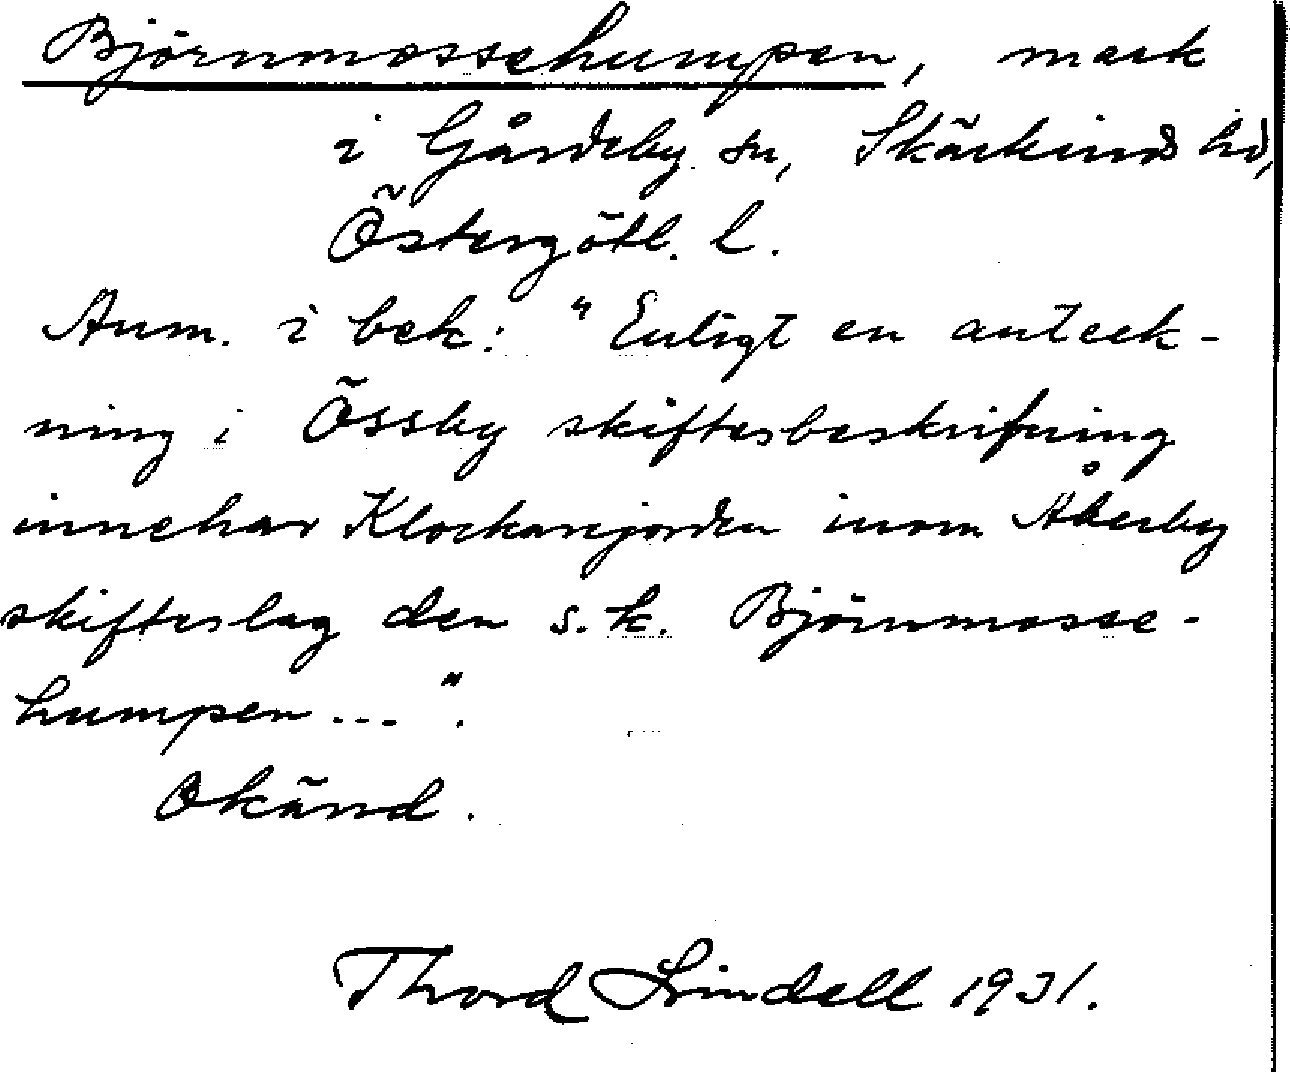 Björnmossehumpen, mark
i Gårdeby sn, Skärkinds hd,
Östergötl. l.
Anm. i bek: "Enligt en anteck-
ning i Össby skiftesbeskrifning
innehar Klockarejorden inom Åkerby
skifteslag den s.k. Björnmosse-
humpen ...".
Okänd.
Thord Lindell 1931.